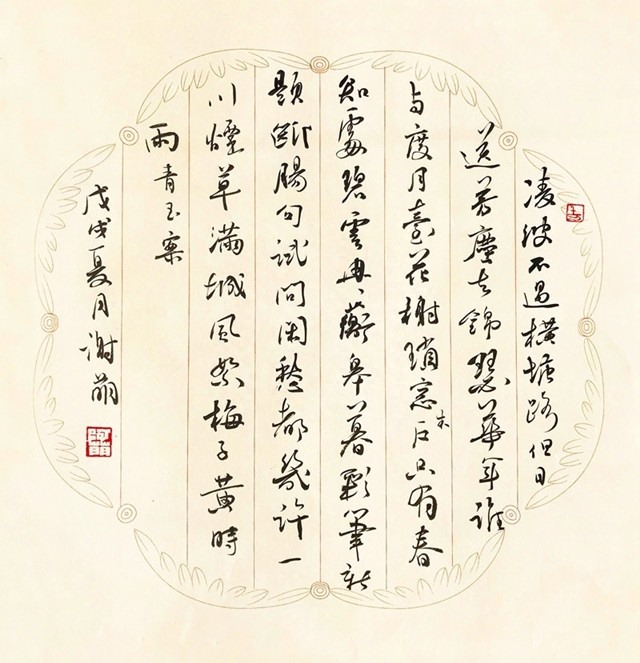 凌波不過橫塘路但目
送芳塵去錦瑟華年誰
与度月臺花榭瑣窓朱戶只有春
知處碧雲冉冉蘅皋暮彩筆新
題斷腸句試問閑愁都幾許一
川煙草滿城風絮梅子黃時
雨青玉案
戊戌夏月謝萌